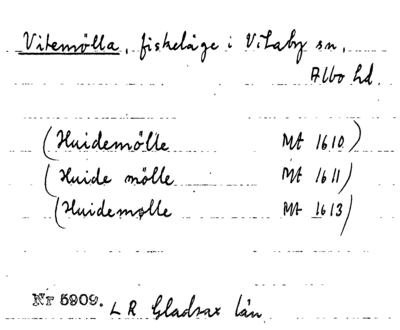 Vitemölla, fiskeläge i Vitaby sn,
Albo hd.
(Huidemölle Mt 1610)
(Huide mölle Mt 1611)
(Huidemølle Mt 1613)
Nr 5909. L R Gladsax län